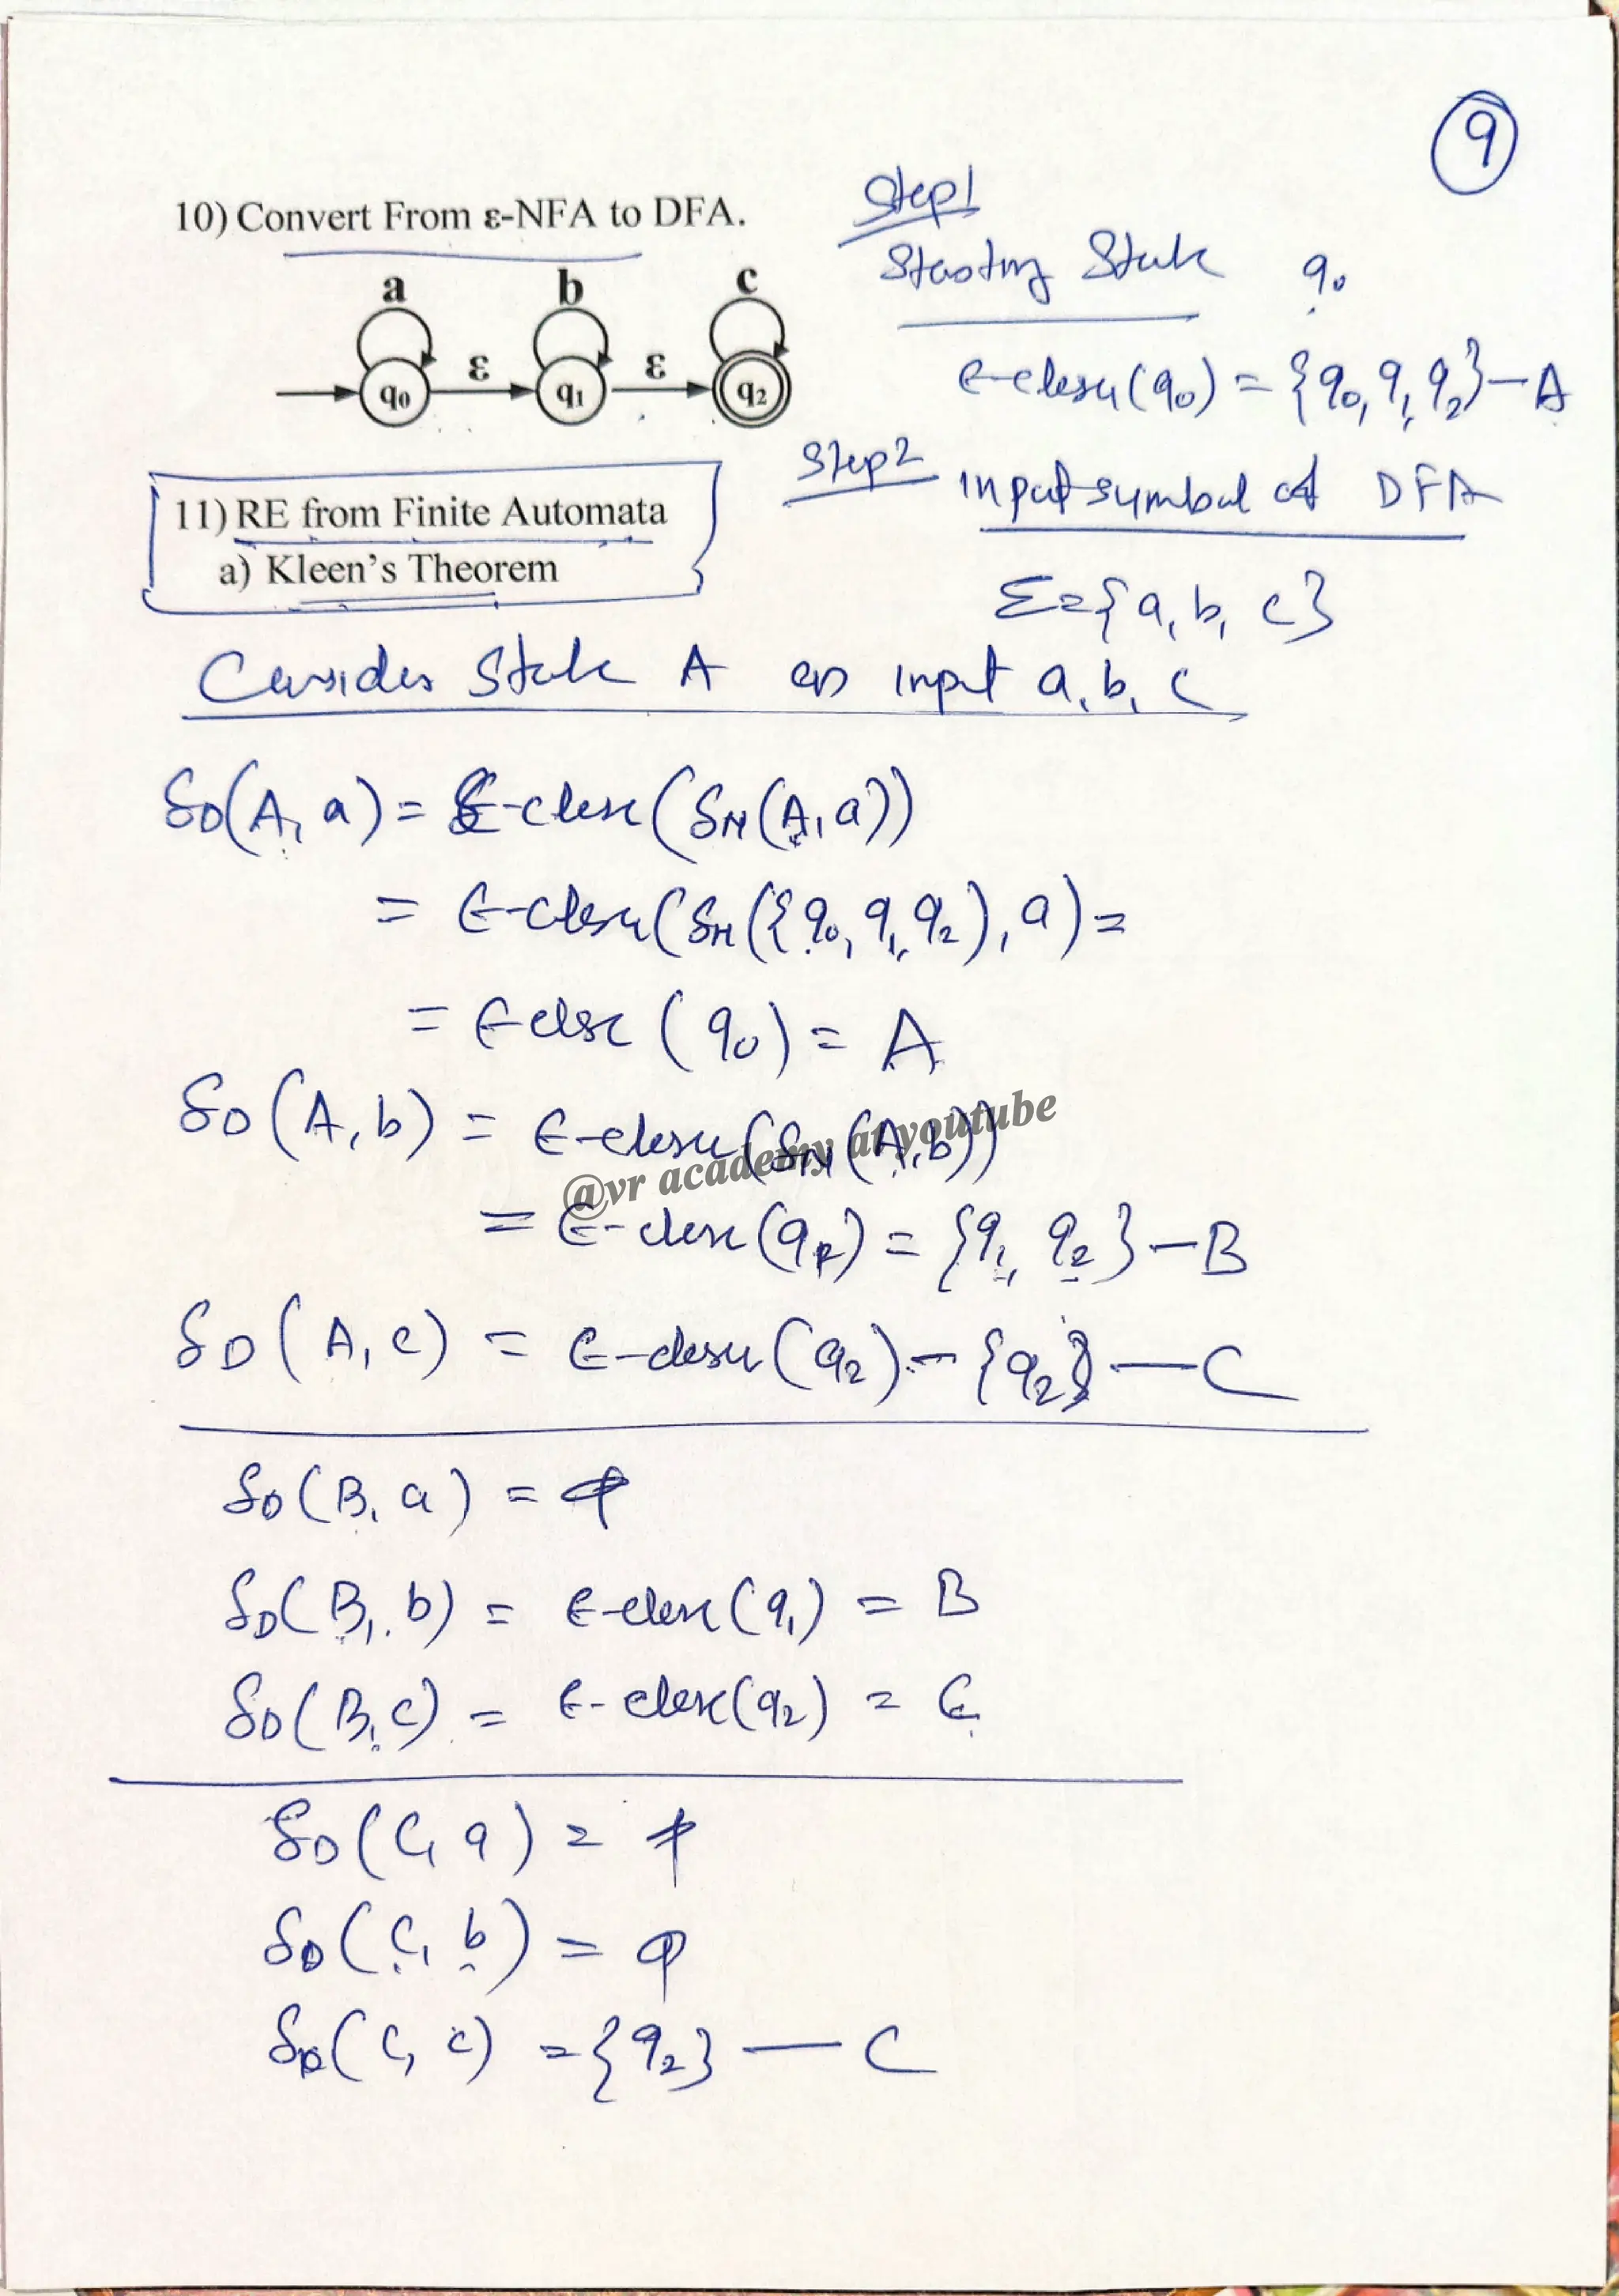 9
10) Convert From ε-NFA to DFA.
a b c
ε ε
q0 q1 q2
Step1
Starting State q0
ϵ-closu(q0) = {q0, q1, q2} — A
Step2 input symbol of DFA
Σ = {a, b, c}
11) RE from Finite Automata
a) Kleen's Theorem
Consider State A on input a, b, c
δD(A, a) = ϵ-closu(δN(A, a))
= ϵ-closu(δN({q0, q1, q2), a) =
= ϵ-closu(q0) = A
δD(A, b) = ϵ-closu(δN(A, b))
@vr academy at youtube
= ϵ-closu(q1) = {q1, q2} — B
δD(A, c) = ϵ-closu(q2) = {q2} — C
δD(B, a) = φ
δD(B, b) = ϵ-closu(q1) = B
δD(B, c) = ϵ-closu(q2) = C
δD(C, a) = φ
δD(C, b) = φ
δD(C, c) = {q2} — C